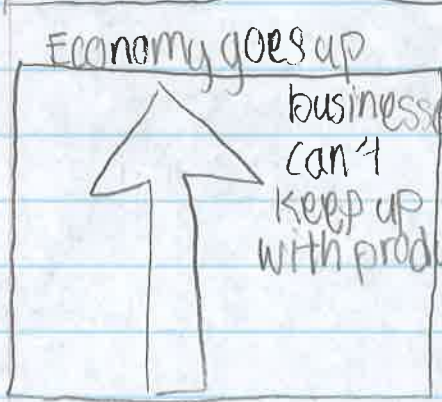 Economy goes up
business
can't
keep up
with prod